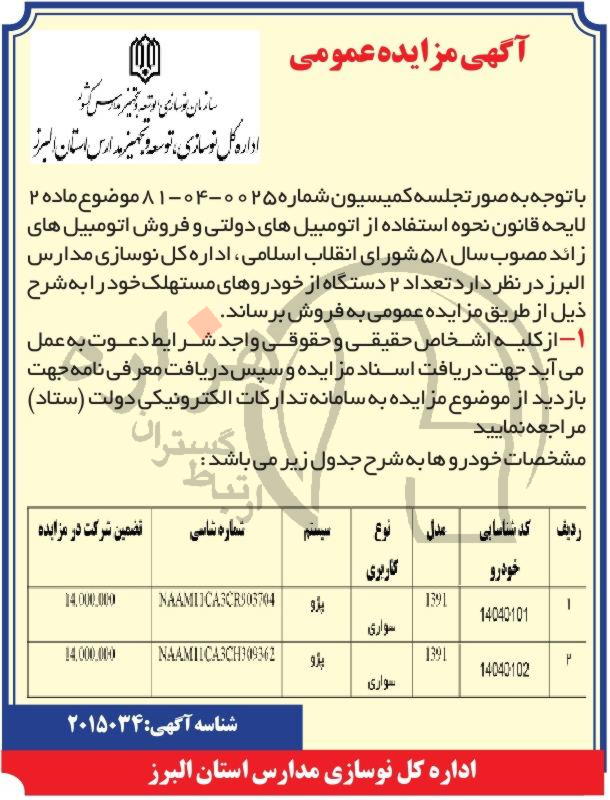 آگهی مزایده عمومی
سازمان نوسازی، توسعه و تجهیز مدارس کشور
اداره کل نوسازی، توسعه و تجهیز مدارس استان البرز
با توجه به صورتجلسه کمیسیون شماره ۰۰۲۵-۰۴-۸۱ موضوع ماده ۲
لایحه قانون نحوه استفاده از اتومبیل های دولتی و فروش اتومبیل های
زائد مصوب سال ۵۸ شورای انقلاب اسلامی ، اداره کل نوسازی مدارس
البرز در نظر دارد تعداد ۲ دستگاه از خودروهای مستهلک خود را به شرح
ذیل از طریق مزایده عمومی به فروش برساند.
۱- از کلیه اشخاص حقیقی و حقوقی واجد شرایط دعوت به عمل
می آید جهت دریافت اسناد مزایده و سپس دریافت معرفی نامه جهت
بازدید از موضوع مزایده به سامانه تدارکات الکترونیکی دولت (ستاد)
مراجعه نمایید
مشخصات خودرو ها به شرح جدول زیر می باشد :
ردیف کد شناسایی خودرو مدل نوع کاربری سیستم شماره شاسی تضمین شرکت در مزایده
۱ 14040101 1391 سواری پژو NAAM11CA3CR903704 14.000.000
۲ 14040102 1391 سواری پژو NAAM11CA3CH309362 14.000.000
شناسه آگهی: ۲۰۱۵۰۳۴
اداره کل نوسازی مدارس استان البرز
هزاره
گستران
ارتباط